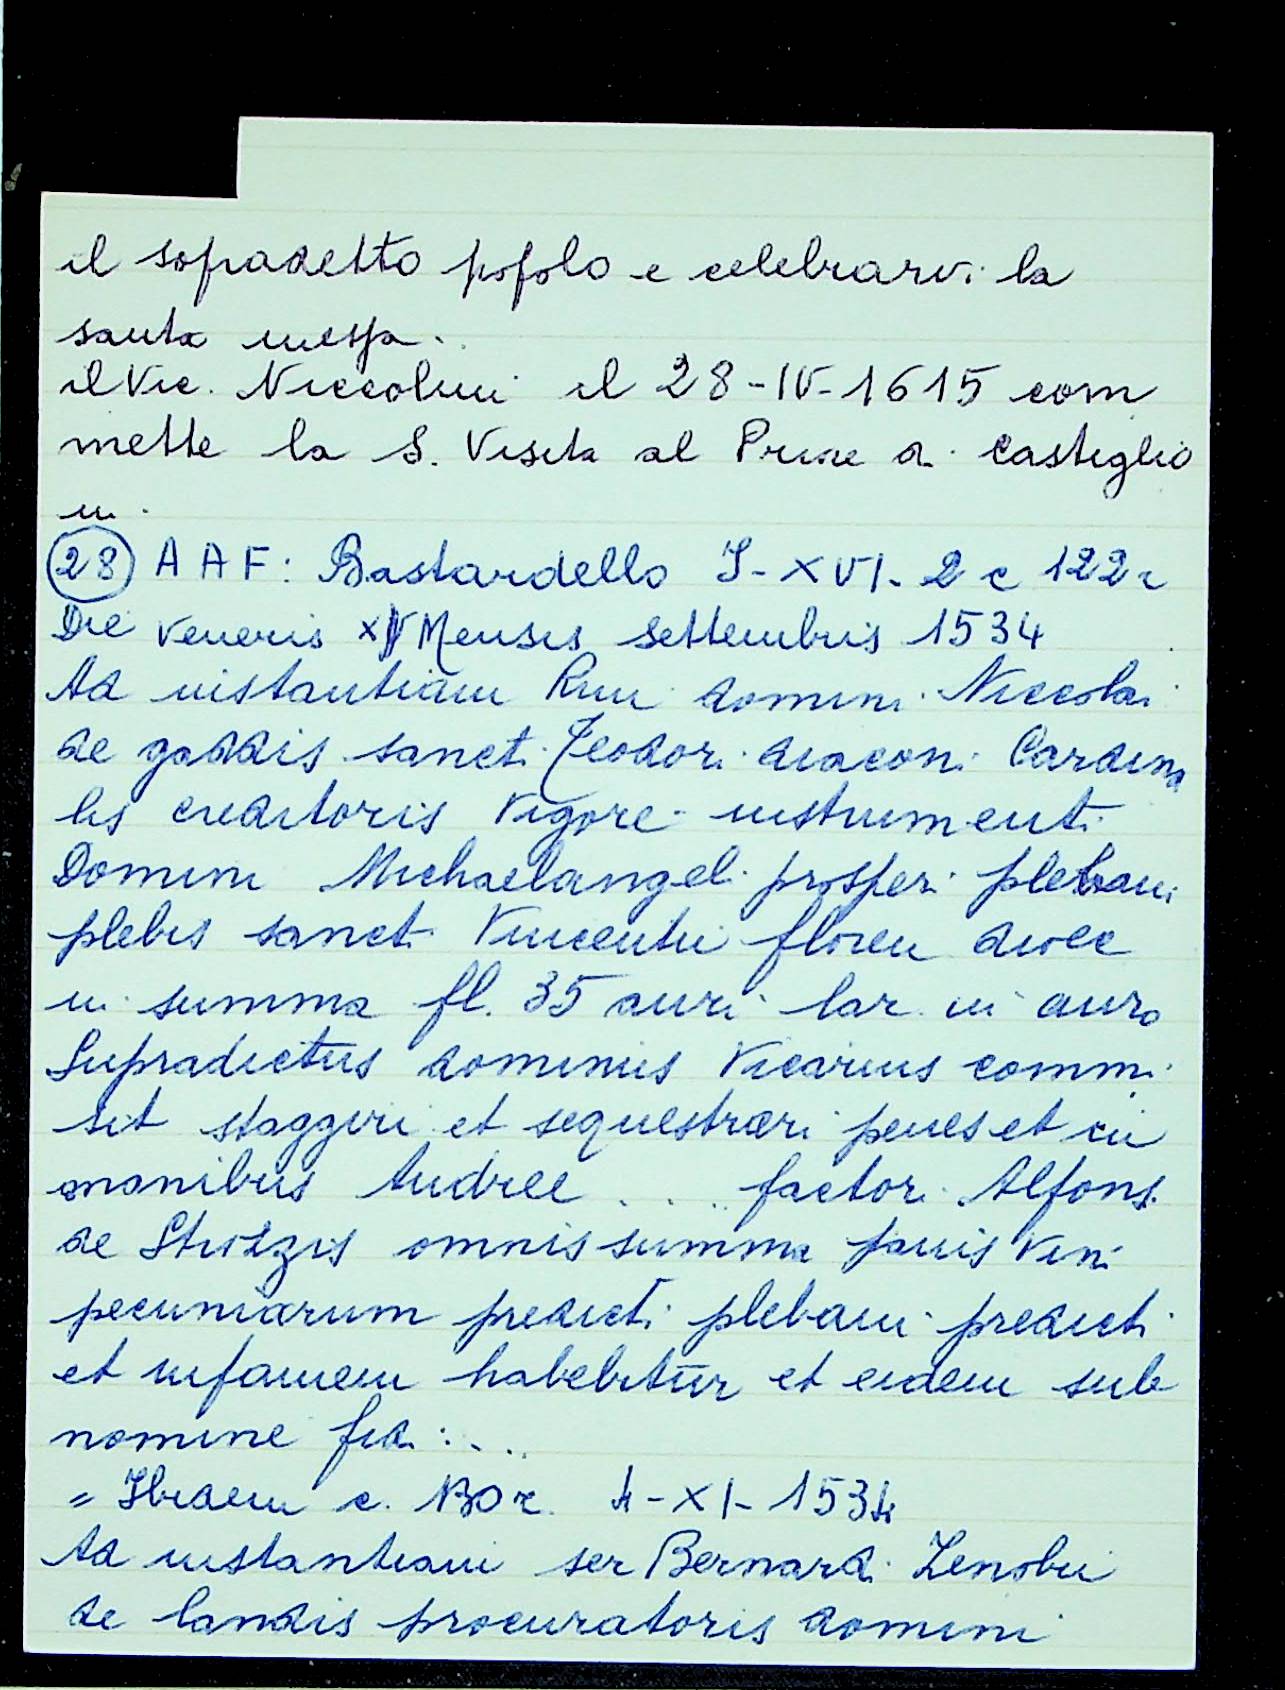 il sopradetto popolo e celebrarvi la
santa messa.
il Vic. Niccolini il 28-IV-1615 com
mette la S. Visita al Priore di Castiglio
ni.
(28) A A F: Bastardello I-XVI-2 c 122r
Die Veneris XV Mensis settembris 1534
Ad instantiam Rmi domini Niccolai
de gaddis sancti Teodori diaconi Cardina
lis creditoris vigore instrumenti
Domini Michaelangeli prosperi plebani
plebis sancti Vincentii floren dioec
in summa fl. 35 auri lar in auro
Supradictus dominus Vicarius commi
sit staggiri et sequestrari penes et in
manibus Andree .... factori Alfonsi
de Strozzis omnis summa panis vini
pecuniarum predicti plebani predicti
et infamem habebitur et eidem sub
nomine fid: ....
= Ibidem c. 130r 4-XI-1534
Ad instantiam ser Bernardi Zenobii
de landis procuratoris domini